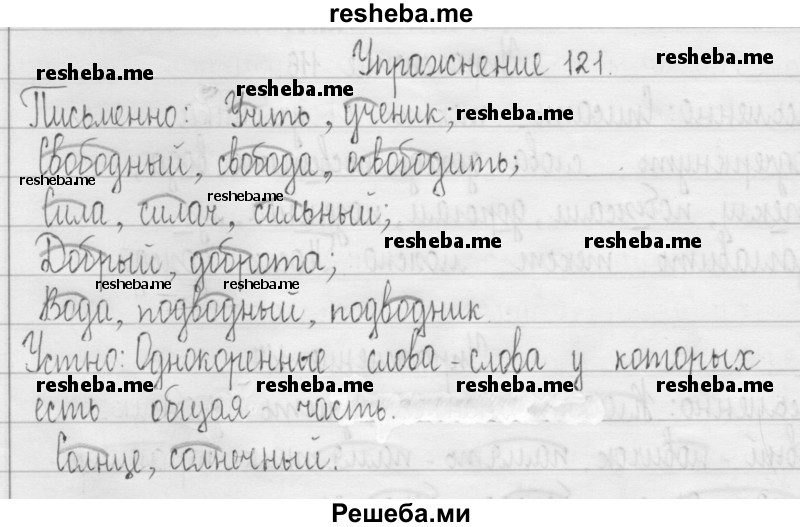 resheba.me
Упражнение 121.
resheba.me
resheba.me
Письменно: Учить, ученик;
resheba.me
Свободный, свобода, освободить;
resheba.me
resheba.me
Сила, силач, сильный;
resheba.me
resheba.me
Добрый, доброта;
resheba.me
resheba.me
Вода, подводный, подводник.
Устно: Однокоренные слова - слова у которых
resheba.me
resheba.me
resheba.me
resheba.me
есть общая часть.
Солнце, солнечный.
Решеба.ми